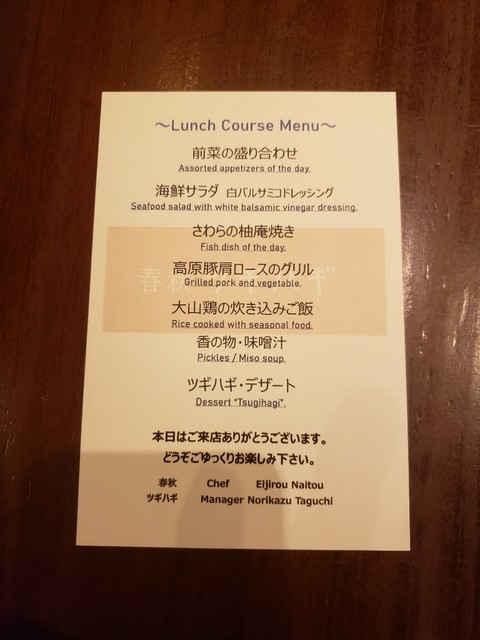 ～Lunch Course Menu～
前菜の盛り合わせ
Assorted appetizers of the day.
海鮮サラダ 白バルサミコドレッシング
Seafood salad with white balsamic vinegar dressing.
さわらの柚庵焼き
Fish dish of the day.
高原豚肩ロースのグリル
Grilled pork and vegetable.
大山鶏の炊き込みご飯
Rice cooked with seasonal food.
香の物・味噌汁
Pickles / Miso soup.
ツギハギ・デザート
Dessert "Tsugihagi".
本日はご来店ありがとうございます。
どうぞごゆっくりお楽しみ下さい。
春秋 Chef Eijirou Naitou
ツギハギ Manager Norikazu Taguchi